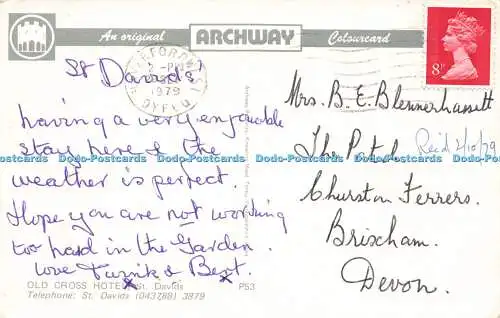 An original ARCHWAY Colourcard
HAVERFORDWEST
2 - PM
1979
DYFED
8P
St Davids'
having a very enjoyable
stay here & the
weather is perfect.
Hope you are not working
too hard in the Garden.
love & Bert.
Mrs. B. E. Blennerhassett
The
Churston Ferrers.
Brixham.
Devon.
Recd 2/10/79
Dodo-Postcards Dodo-Postcards Dodo-Postcards Dodo-Postcards Dodo-Postcards Dodo-Postcards
OLD CROSS HOTEL St. Davids P53
Telephone: St. Davids (0437/88) 3879